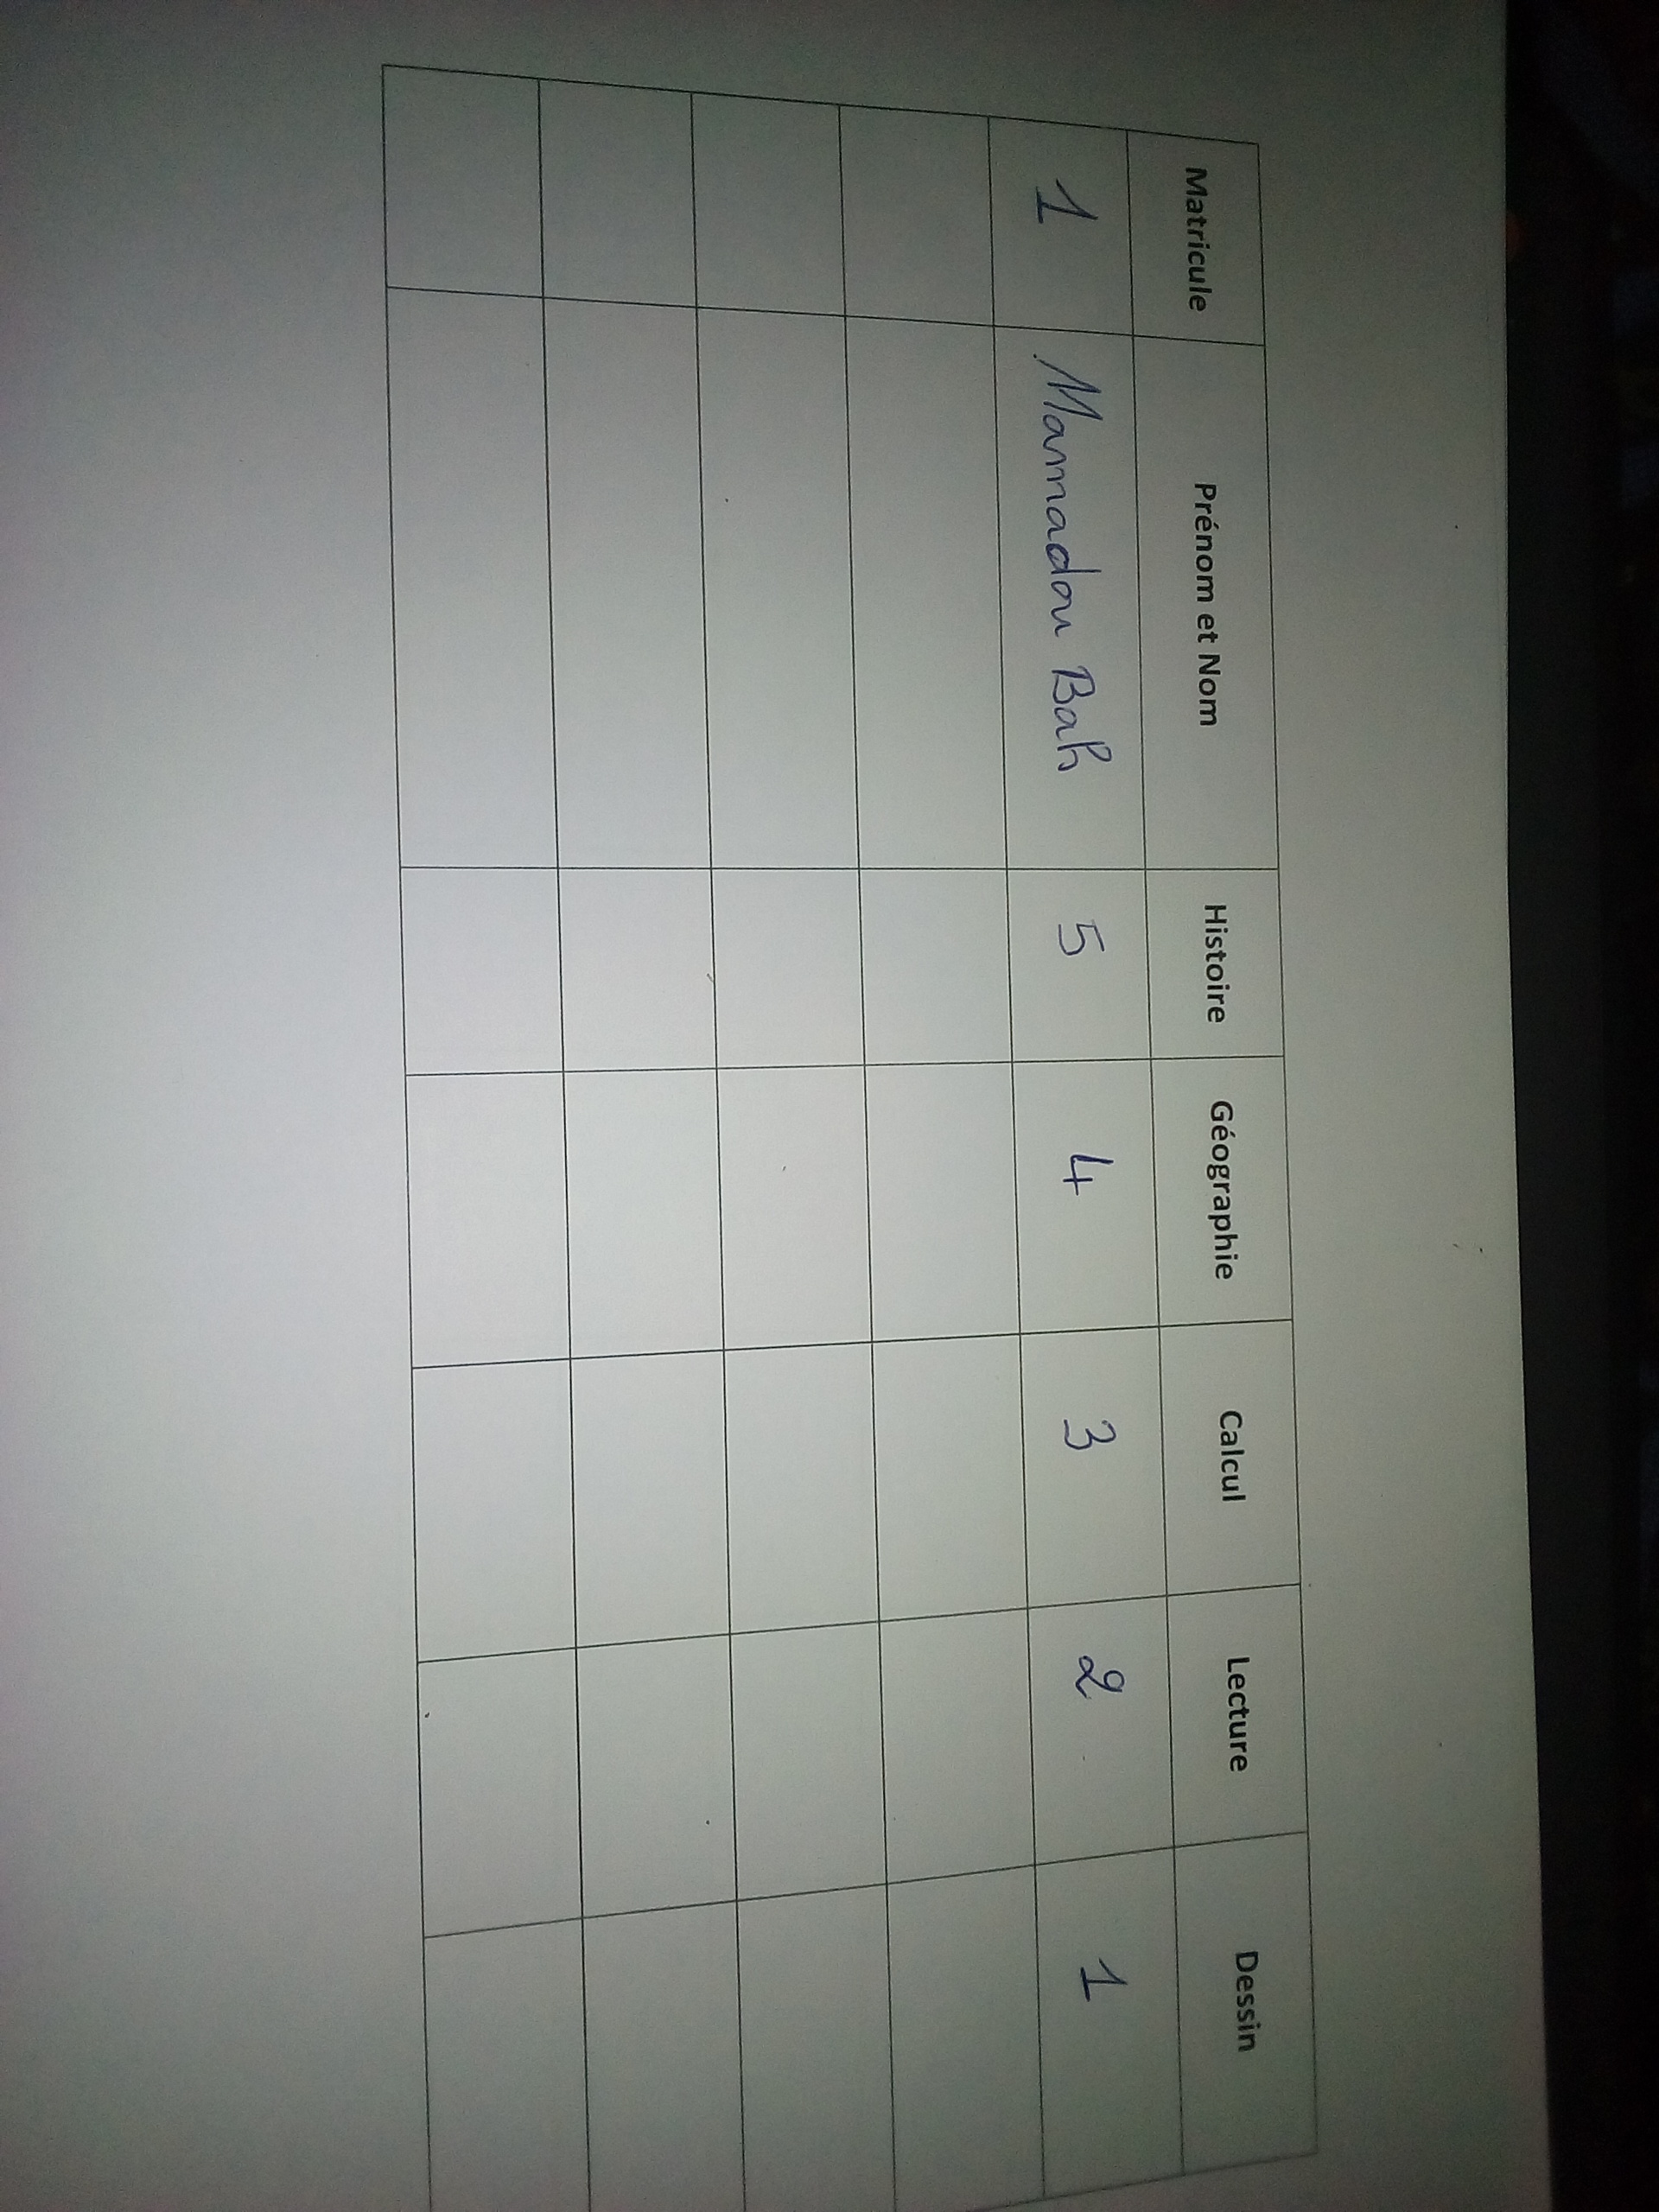 Matricule Prénom et Nom Histoire Géographie Calcul Lecture Dessin
1 Mamadou Bah 5 4 3 2 1